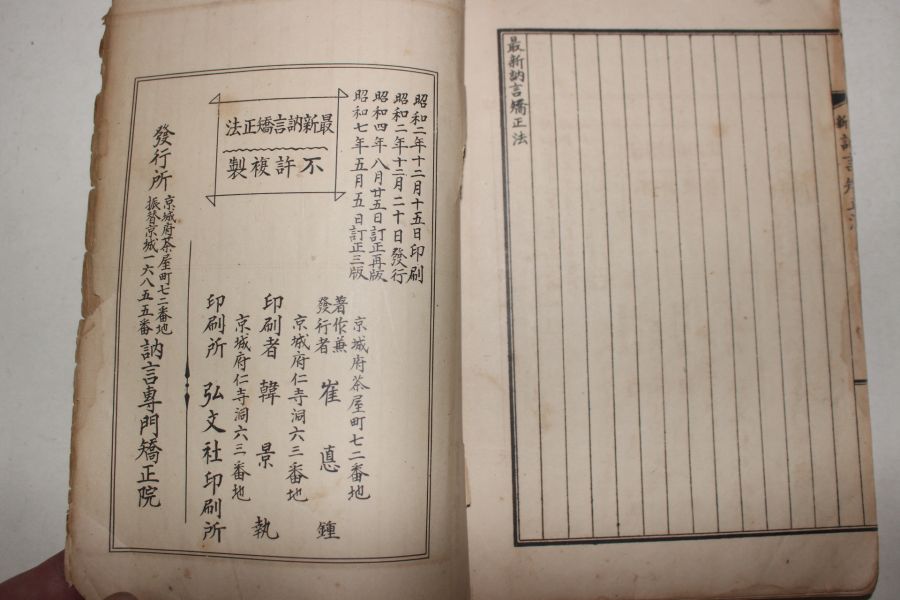 最新訥言矯正法
昭和二年十二月十五日印刷
昭和二年十二月二十日發行
昭和四年八月廿五日訂正再版
昭和七年五月五日訂正三版
最新訥言矯正法
不許複製
京城府茶屋町七二番地
著作兼
發行者
崔 悳 鍾
京城府仁寺洞六三番地
印刷者 韓景執
京城府仁寺洞六三番地
印刷所 弘文社印刷所
發行所
京城府茶屋町七二番地
振替京城一六八五五番
訥言專門矯正院